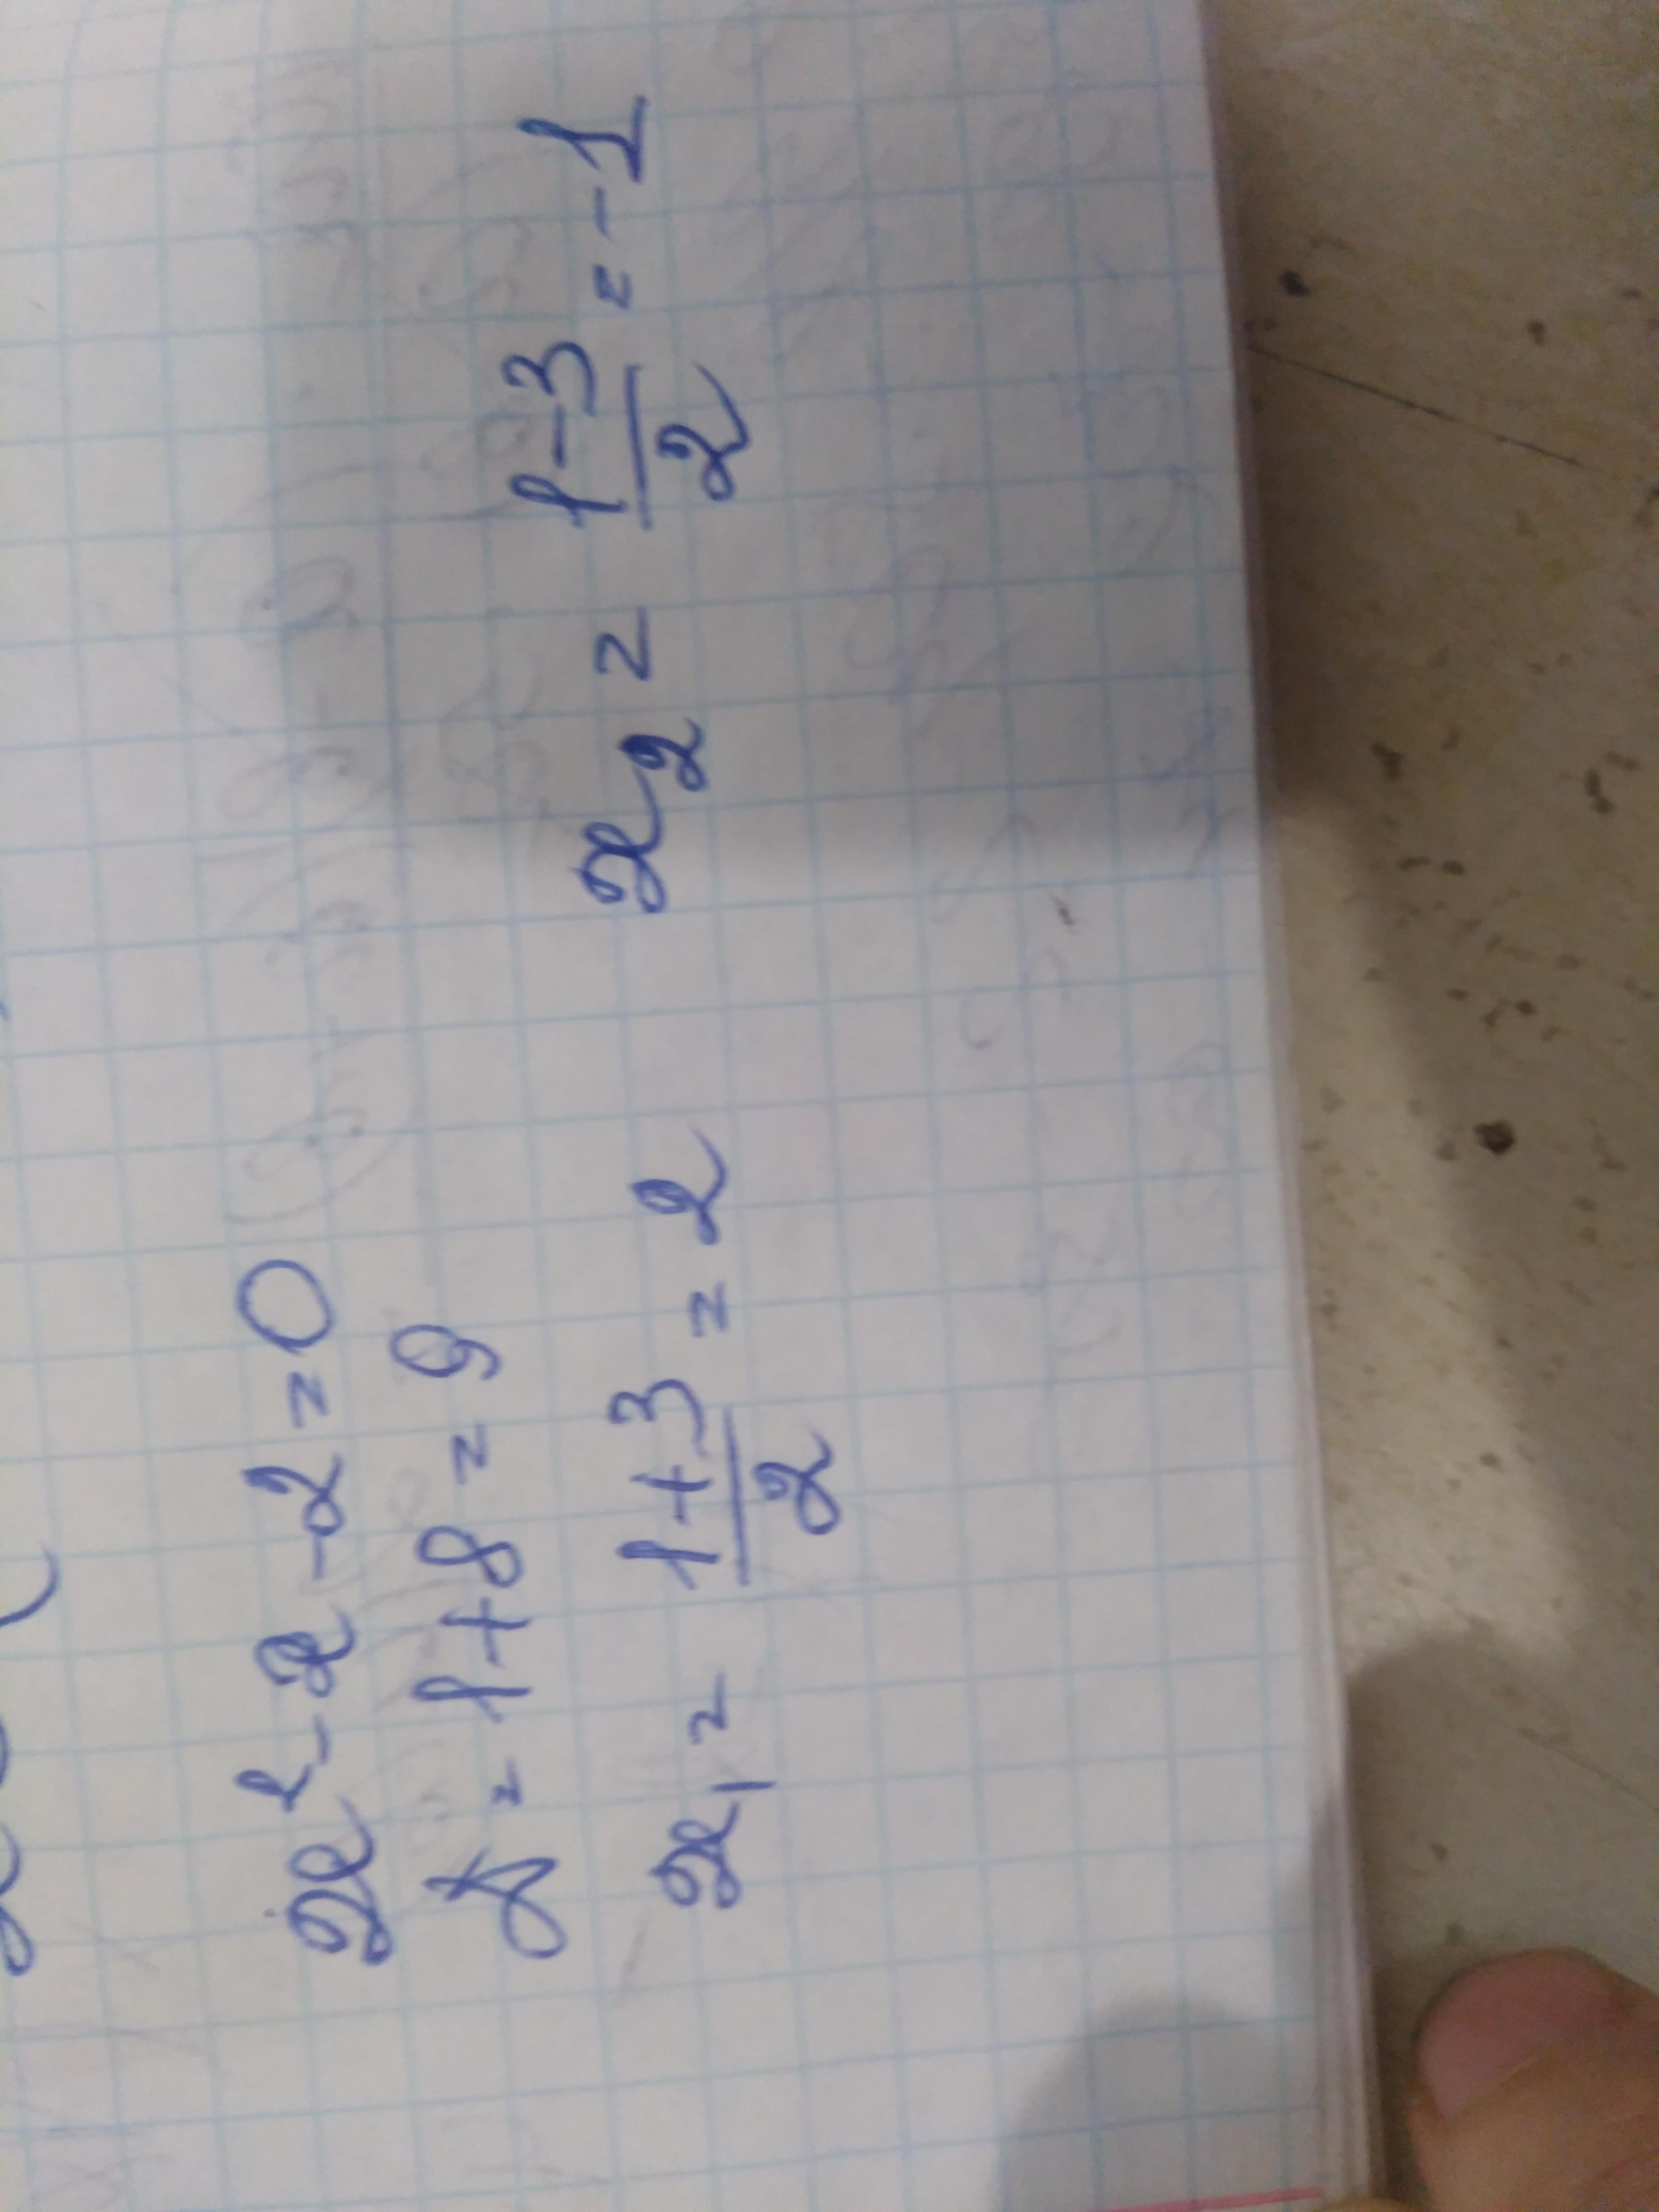 x² - x - 2 = 0
D = 1 + 8 = 9
x₁ = (1 + 3)/2 = 2 x₂ = (1 - 3)/2 = -1